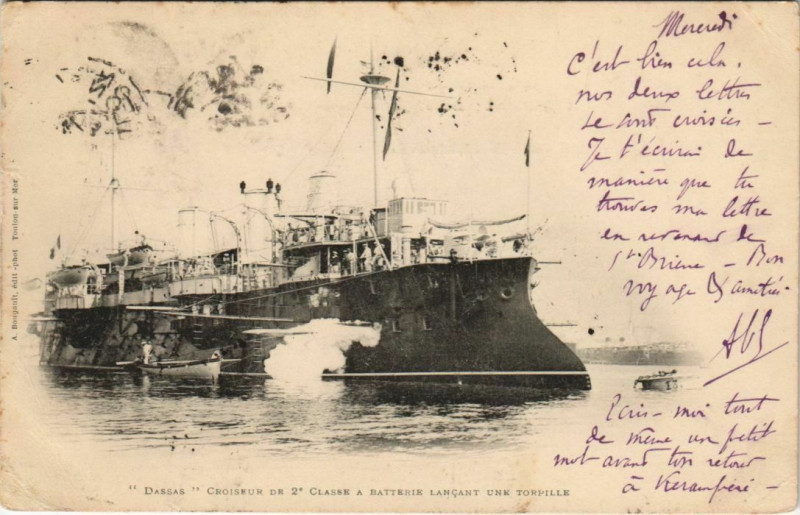 Mercredi
C'est bien cela,
nos deux lettres
se sont croisées —
Je t'écrirai de
manière que tu
trouves ma lettre
en revenant de
St Brieuc — Bon
voyage & amitiés
Ecris-moi tout
de même un petit
mot avant ton retour
à
A. Bougault, édit.-phot Toulon-sur-Mer
" DASSAS " CROISEUR DE 2e CLASSE A BATTERIE LANÇANT UNE TORPILLE